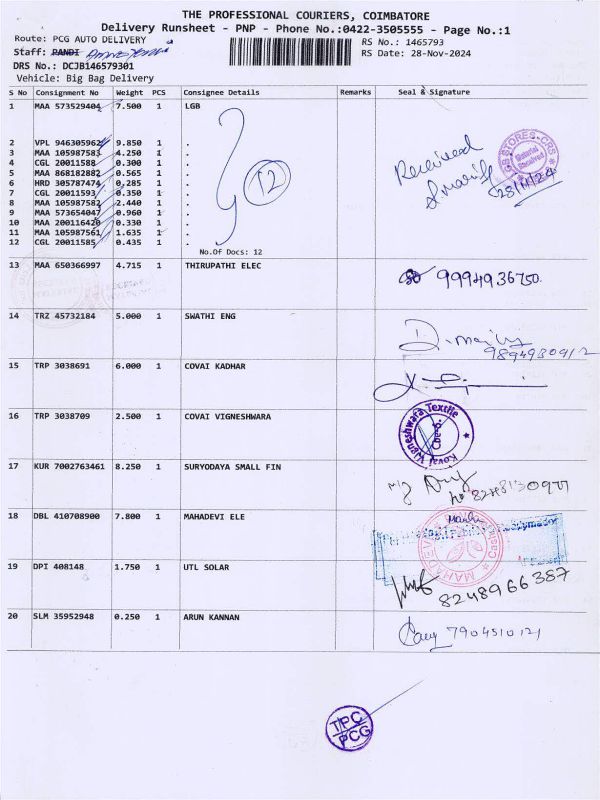 THE PROFESSIONAL COURIERS, COIMBATORE
Delivery Runsheet - PNP - Phone No.:0422-3505555 - Page No.:1
Route: PCG AUTO DELIVERY
RS No.: 1465793
Staff: PANDI
RS Date: 28-Nov-2024
DRS No.: DCJB146579301
Vehicle: Big Bag Delivery
S No Consignment No Weight PCS Consignee Details Remarks Seal & Signature
1 MAA 573529404 7.500 1 LGB
2 VPL 946305962 9.850 1 .
3 MAA 105987583 4.250 1 .
4 CGL 20011588 0.300 1 .
5 MAA 868182882 0.565 1 .
6 HRD 305787474 0.285 1 .
7 CGL 20011593 0.350 1 .
8 MAA 105987582 2.440 1 .
9 MAA 573654047 0.960 1 .
10 MAA 200116420 0.330 1 .
11 MAA 105987561 1.635 1 .
12 CGL 20011585 0.435 1 .
12
Received
28/11/24
LGB STORES-CRS
Material
Received
No.Of Docs: 12
13 MAA 650366997 4.715 1 THIRUPATHI ELEC
9994936750
14 TRZ 45732184 5.000 1 SWATHI ENG
9894930912
15 TRP 3038691 6.000 1 COVAI KADHAR
16 TRP 3038709 2.500 1 COVAI VIGNESHWARA
Kovai Vigneshwara Textile
Cbe-6.
17 KUR 7002763461 8.250 1 SURYODAYA SMALL FIN
18 DBL 410708900 7.800 1 MAHADEVI ELE
19 DPI 408148 1.750 1 UTL SOLAR
8248966387
20 SLM 35952948 0.250 1 ARUN KANNAN
7904510121
TPC
PCG